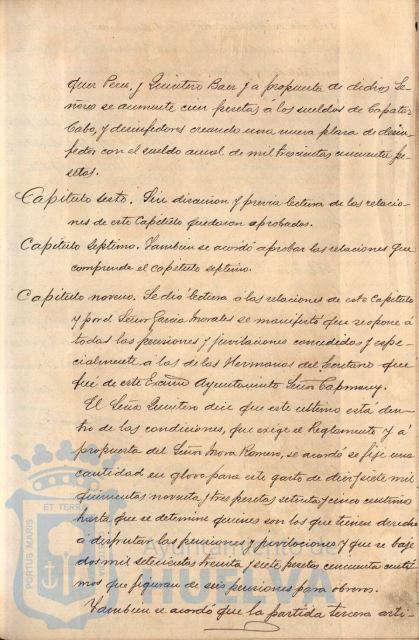 quer Pera, y Quintero Baez y a propuesta de dichos Se-
ñores se aumente cien pesetas á los sueldos de Capataz
Cabo, y desinfectores creando una nueva plaza de desin-
fector con el sueldo anual de mil trescientas cincuenta pe-
setas.
Capitulo sexto. Sin discusion y previa lectura de las relacio-
nes de este Capitulo quedaron aprobados.
Capitulo Septimo. Tambien se acordó aprobar las relaciones que
comprende el capitulo septimo.
Capitulo noveno. Se dió lectura á las relaciones de este Capitulo
y por el Señor Garcia Morales se manifestó que se opone á
todas las pensiones y jubilaciones concedidas y espe-
cialmente á las de las Hermanas del Secretario que
fué de este Excmo Ayuntamiento Señor Capmany.
El Señor Quintero dice que este ultimo está den-
tro de las condiciones, que exige el Reglamento y á
propuesta del Señor Mora Romero, se acordó se fije una
cantidad en globo para este gasto de diez y siete mil
quinientas noventa y tres pesetas setenta y cinco centimos
hasta que se determine quienes son los que tienen derecho
á disfrutar las pensiones y jubilaciones y que se baje
dos mil setecientas treinta y siete pesetas cincuenta centi-
mos que figuran de seis pensiones para obreros.
Tambien se acordó que la partida tercera arti-
PORTUS MARIS ET TERRAE
Ayuntamiento de
HUELVA